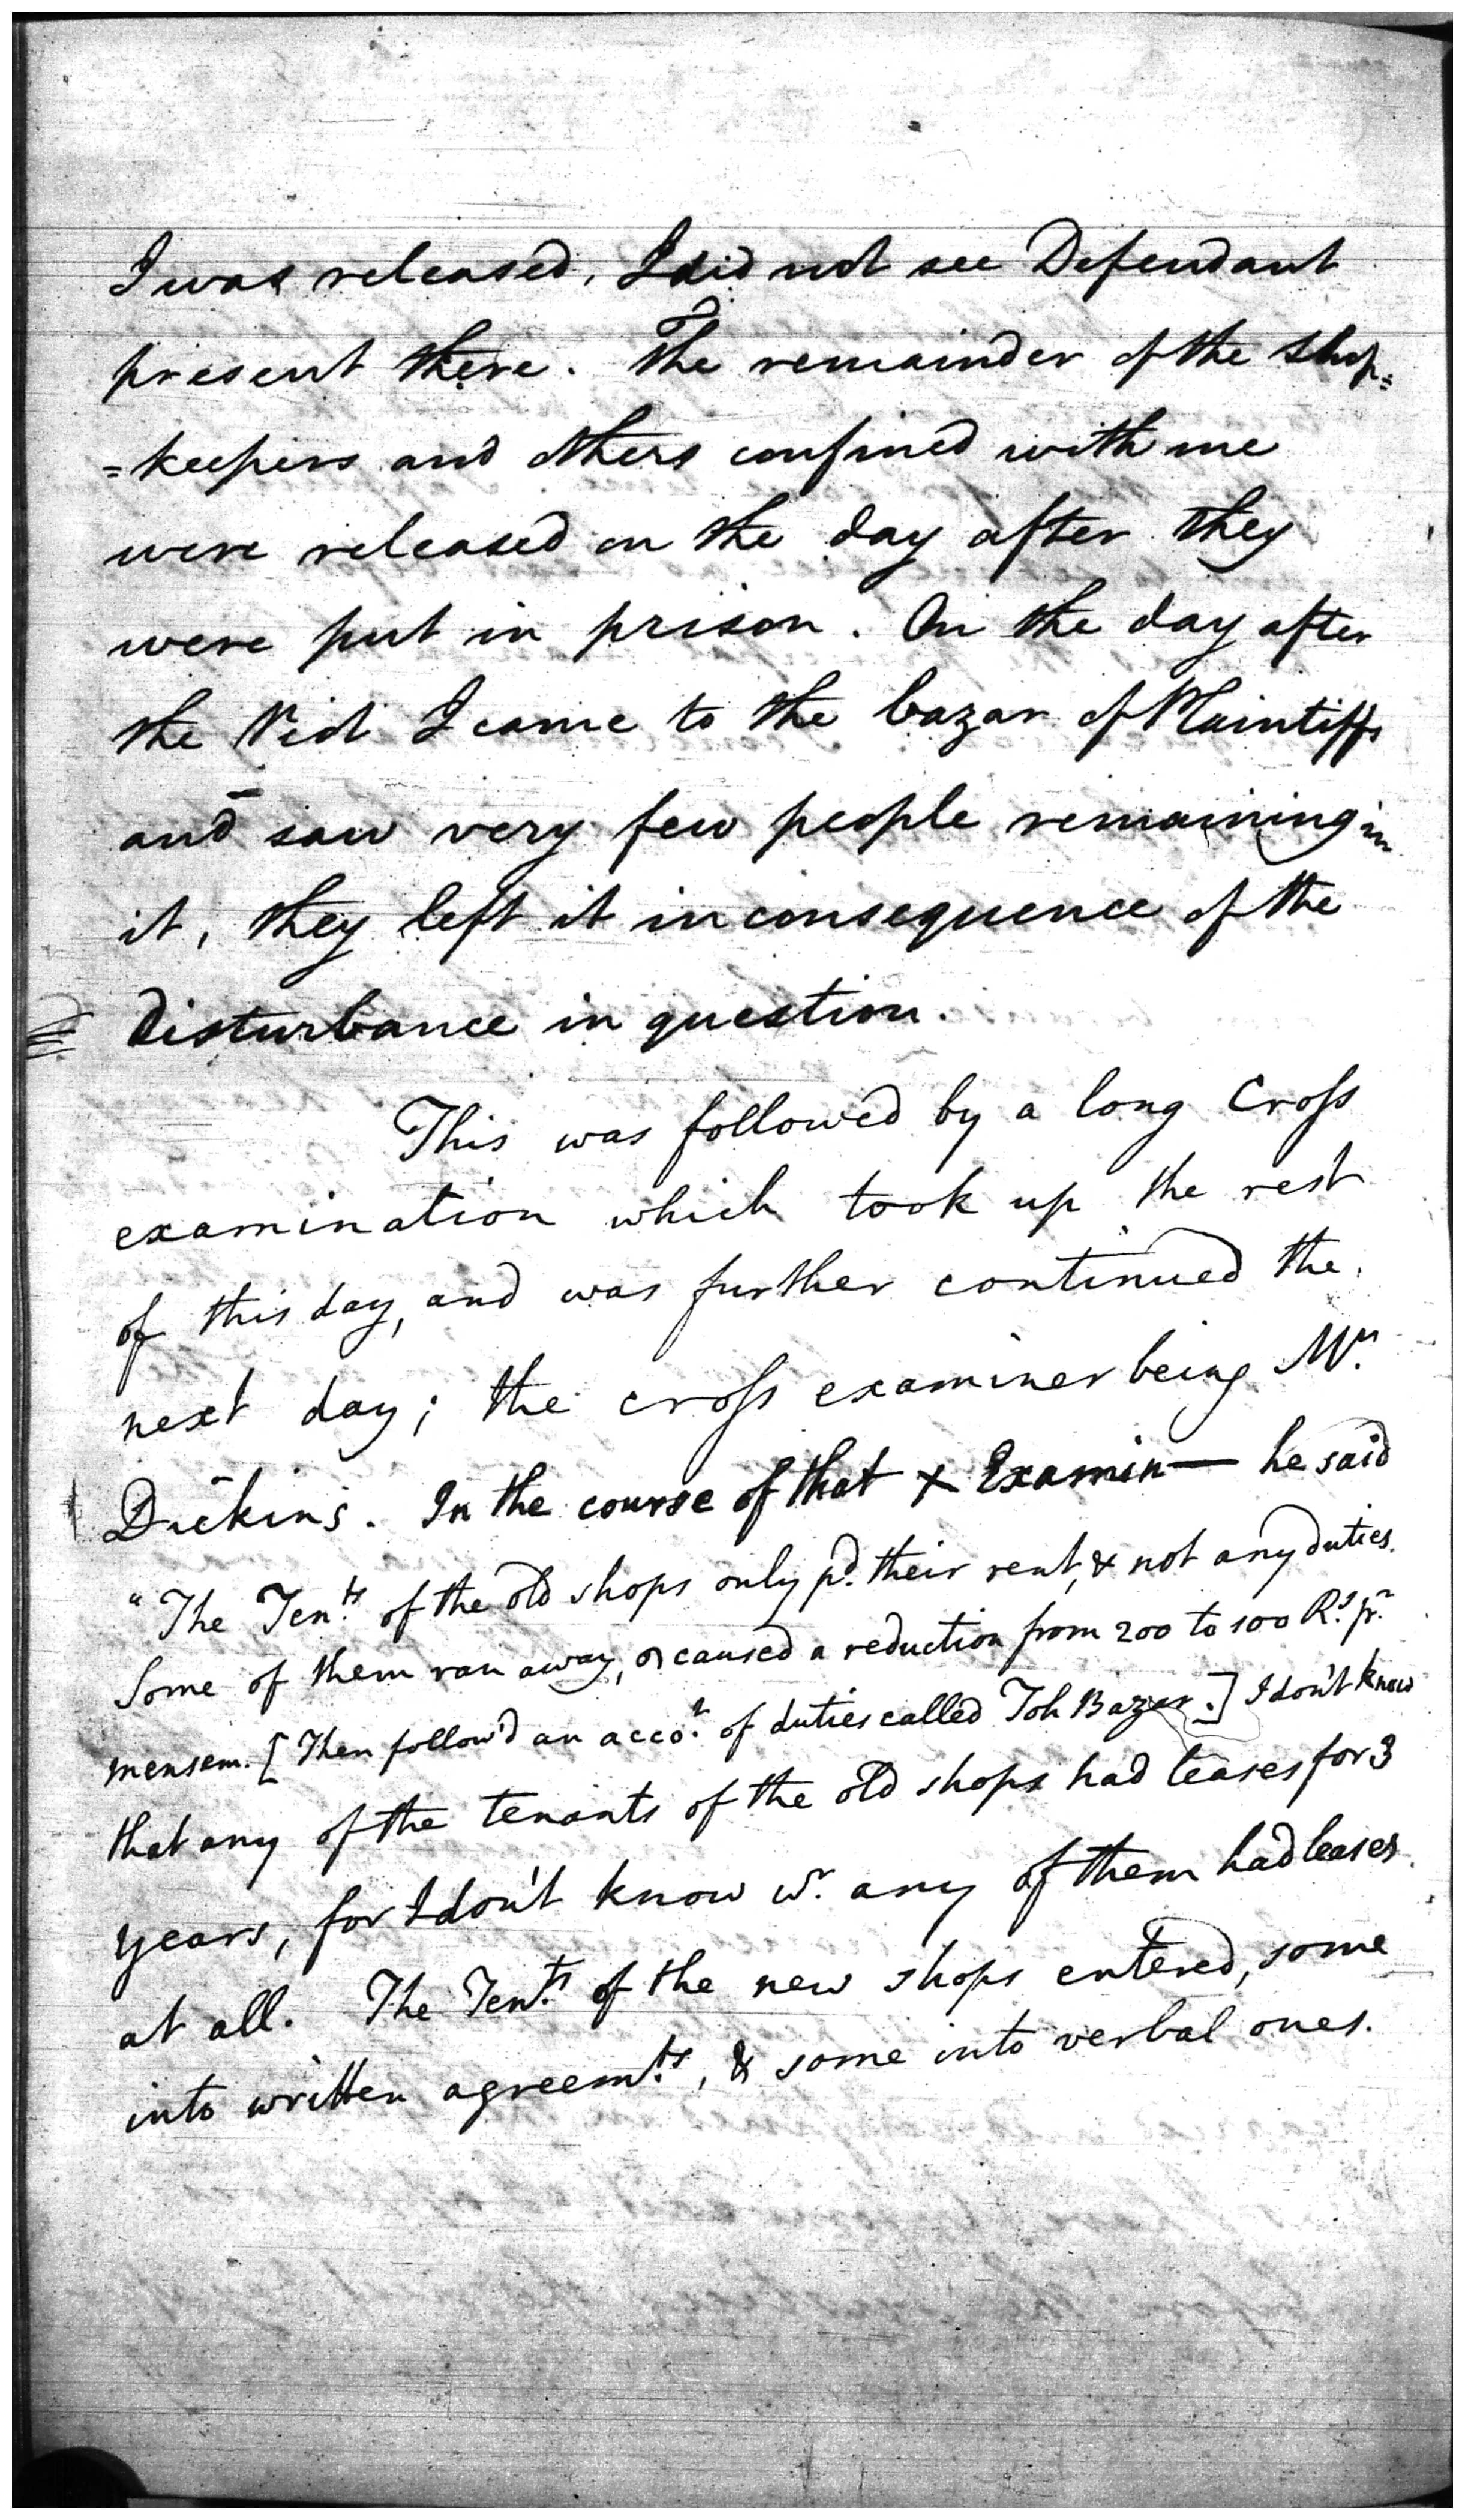 I was released, I did not see Defendant
present there. The remainder of the Shop=
=keepers and others confined with me
were released on the day after they
were put in prison. On the day after
the Riot I came to the bazar of Plaintiffs
and saw very few people remaining in
it, they left it in consequence of the
disturbance in question.
This was followed by a long Cross
examination which took up the rest
of this day, and was further continued the
next day; the cross examiner being Mr.
Dickins. In the course of that × Examin— he said
"The Tents. of the old shops only pd. their rent, & not any duties.
Some of them ran away, & caused a reduction from 200 to 100 Rs. pr.
mensem. [Then follow'd an accot. of duties called Toh Bazar.] I don't know
that any of the tenants of the old shops had leases for 3
years, for I don't know wr. any of them had leases
at all. The Tents. of the new shops entered, some
into written agreemts., & some into verbal ones.